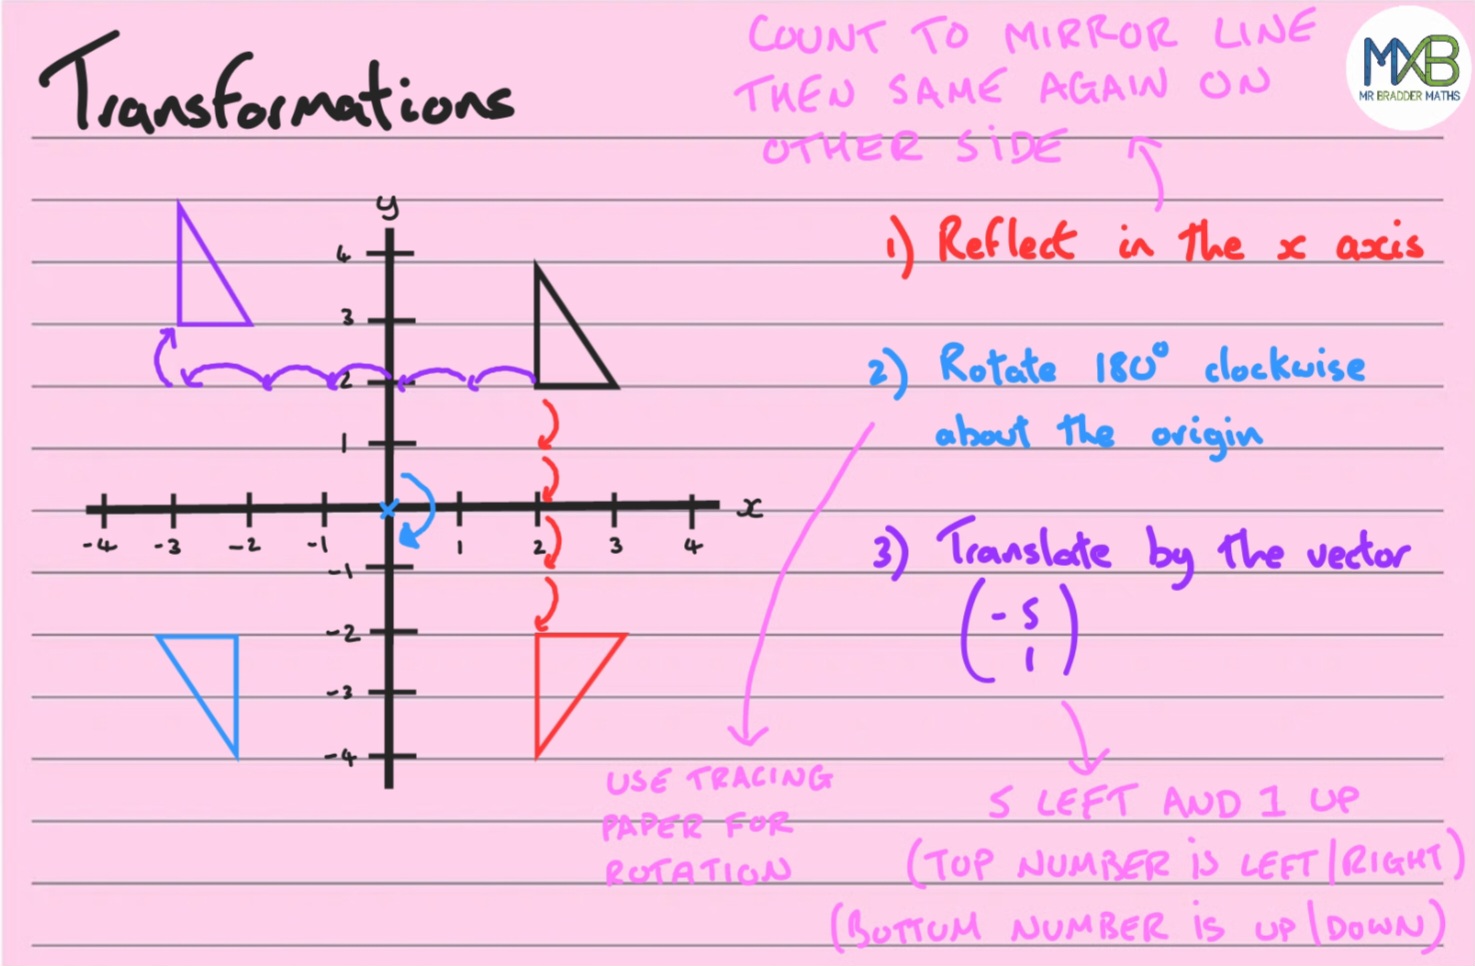 Transformations
COUNT TO MIRROR LINE
THEN SAME AGAIN ON
OTHER SIDE
MXB
MR BRADDER MATHS
1) Reflect in the x axis
2) Rotate 180° clockwise
about the origin
3) Translate by the vector
(-5
1)
y
4
3
2
1
x
-4 -3 -2 -1 1 2 3 4
-1
-2
-3
-4
USE TRACING
PAPER FOR
ROTATION
5 LEFT AND 1 UP
(TOP NUMBER IS LEFT/RIGHT)
(BOTTOM NUMBER IS UP/DOWN)